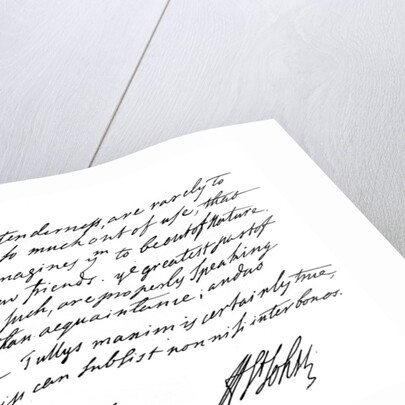 tenderness, are rarely to
so much out of use, that
magines ym to be out of Nature.
friends. ye greatest part of
such, are properly speaking
than acquaintance; and no
Tullys maxim is certainly true,
can subsist non nisi inter bonos.
H St John